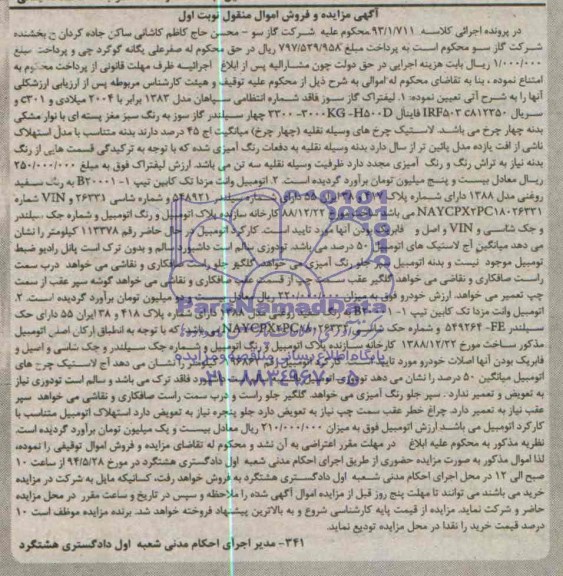 آگهی مزایده و فروش اموال منقول نوبت اول
در پرونده اجرائی کلاسه ۹۳/۱/۷۱۱ محکوم علیه شرکت گاز سو – محسن حاج کاظم کاشانی ساکن جاده کردان خ بخشنده
شرکت گاز سو محکوم است به پرداخت مبلغ ۷۹۷/۵۲۹/۹۵۸ ریال در حق محکوم له صفرعلی یگانه گوگرد چی و پرداخت مبلغ
۱/۰۰۰/۰۰۰ ریال بابت هزینه اجرایی در حق دولت چون مشارالیه پس از ابلاغ اجرائیه ظرف مهلت قانونی از پرداخت محکوم به
امتناع نموده ، بنا به تقاضای محکوم له اموالی به شرح ذیل از محکوم علیه توقیف و هیئت کارشناس مربوطه پس از ارزیابی ارزشکلی
آنها را به شرح آتی تعیین نموده: ۱. لیفتراک گاز سوز فاقد شماره انتظامی سپاهان مدل ۱۳۸۳ برابر با ۲۰۰۴ میلادی و C۳۰۱
سریال IRF۵۰۲ C۸۱۲۳۵۰ فاینال H۵۰۰D -۳۳۰۰ ۳۰۰۰KG چهار سیلندر گاز سوز به رنگ سبز مغز پسته ای با نوار مشکی
بدنه چهار چرخ می باشد. لاستیک چرخ های وسیله نقلیه (چهار چرخ) میانگیت آج ۴۵ درصد دارند بدنه متناسب با مدل استهلاک
ناشی از افت یازده مدل پائین تر از سال دارد بدنه وسیله نقلیه به دفعات رنگ آمیزی شده که با توجه به ترکیدگی قسمت هایی از رنگ
بدنه نیاز به تراش رنگ و رنگ آمیزی مجدد دارد ظرفیت وسیله نقلیه سه تن می باشد. ارزش لیفتراک فوق به مبلغ ۲۵۰/۰۰۰/۰۰۰
ریال معادل بیست و پنج میلیون تومان برآورد گردیده است. ۲. اتومبیل وانت مزدا تک کابین تیپ ۱-B۲۰۰۰۱ به رنگ سفید
روغنی مدل ۱۳۸۸ دارای شماره پلاک ایران ۵۵ دارای شماره سیلندر ۵۴۸۹۲۱ و شماره شاسی ۲۶۳۳۱ و VIN شماره
NAYCPX۲PC۱۸۰۲۶۳۳۱ می باشد ۸۸/۱۲/۲۲ کارخانه سازنده پلاک اتومبیل و رنگ اتومبیل و شماره حک سیلندر
و حک شاسی و VIN و اصل و فابریک بودن آنها مورد تایید است. کارکرد اتومبیل در حال حاضر رقم ۱۱۳۳۷۸ کیلومتر را نشان
می دهد میانگین آج لاستیک های اتومبیل ۵۰ درصد می باشد. تودوزی سالم است داشبورد سالم و بدون ترک است پانل رادیو ضبط
تومبیل موجود نیست و بدنه اتومبیل سپر جلو رنگ آمیزی می خواهد گلگیر جلو راست صافکاری و نقاشی می خواهد درب سمت
راست صافکاری و نقاشی می خواهد گلگیر عقب سمت چپ از قسمت عقب صافکاری و نقاشی می خواهد گوشه سپر عقب از سمت
چپ تعمیر می خواهد. ارزش خودرو فوق به میزان ۲۲۰/۰۰۰/۰۰۰ ریال معادل بیست و دو میلیون تومان برآورد گردیده است. ۳.
اتومبیل وانت مزدا تک کابین تیپ ۱ دارای شماره پلاک ۴۱۸ و ۳۸ ایران ۵۵ دارای حک
سیلندر FE- ۵۴۹۲۶۴ و شماره حک شاسی NAYCPX۲PC۱۸۰۲۶۳۳۷ می باشد که با توجه به انطباق ارکان اصلی اتومبیل
مذکور ساخت مورخ ۱۳۸۸/۱۲/۲۲ کارخانه سازنده پلاک اتومبیل و رنگ اتومبیل و شماره حک سیلندر و حک شاسی و اصیل و
فابریک بودن آنها اصلات خودرو مورد تایید است. کارکرد اتومبیل رقم کیلومتر را نشان می دهد آج لاستیک چرخ های
اتومبیل میانگین ۵۰ درصد را نشان می دهد تودوزی فاقد ترک می باشد و سالم است تودوزی نیاز
به تعویض و تعمیر ندارد . سپر جلو رنگ آمیزی می خواهد. گلگیر جلو راست و درب سمت راست صافکاری و نقاشی می خواهد سپر
عقب نیاز به تعمیر دارد. چراغ خطر عقب سمت چپ نیاز به تعویض دارد جلو پنجره نیاز به تعویض دارد استهلاک اتومبیل متناسب با
کارکرد اتومبیل می باشد ارزش اتومبیل فوق به میزان ۲۱۰/۰۰۰/۰۰۰ ریال معادل بیست و یک میلیون تومان برآورد گردیده است.
نظریه مذکور به محکوم علیه ابلاغ در مهلت مقرر اعتراضی به آن نشد و محکوم له تقاضای مزایده و فروش اموال توقیفی را نموده،
لذا اموال مذکور به صورت مزایده حضوری از طریق اجرای احکام مدنی شعبه اول دادگستری هشتگرد در مورخ ۹۴/۵/۲۸ از ساعت ۱۰
صبح الی ۱۲ در محل اجرای احکام مدنی شعبه اول دادگستری هشتگرد به فروش خواهد رفت، کسانیکه مایل به شرکت در مزایده
خرید می باشند می توانند تا مهلت پنج روز قبل از مزایده اموال آگهی شده را ملاحظه و سپس در تاریخ و ساعت مقرر در محل مزایده
حاضر و شرکت نماید. مزایده از قیمت پایه کارشناسی شروع و به بالاترین پیشنهاد فروخته خواهد شد. برنده مزایده موظف است ۱۰
درصد قیمت خرید را نقدا در محل مزایده تودیع نماید.
۳۴۱- مدیر اجرای احکام مدنی شعبه اول دادگستری هشتگرد
ParsNamadData
پایگاه اطلاع رسانی مناقصه و مزایده
۰۲۱-۸۸۳۴۹۶۷۰-۵